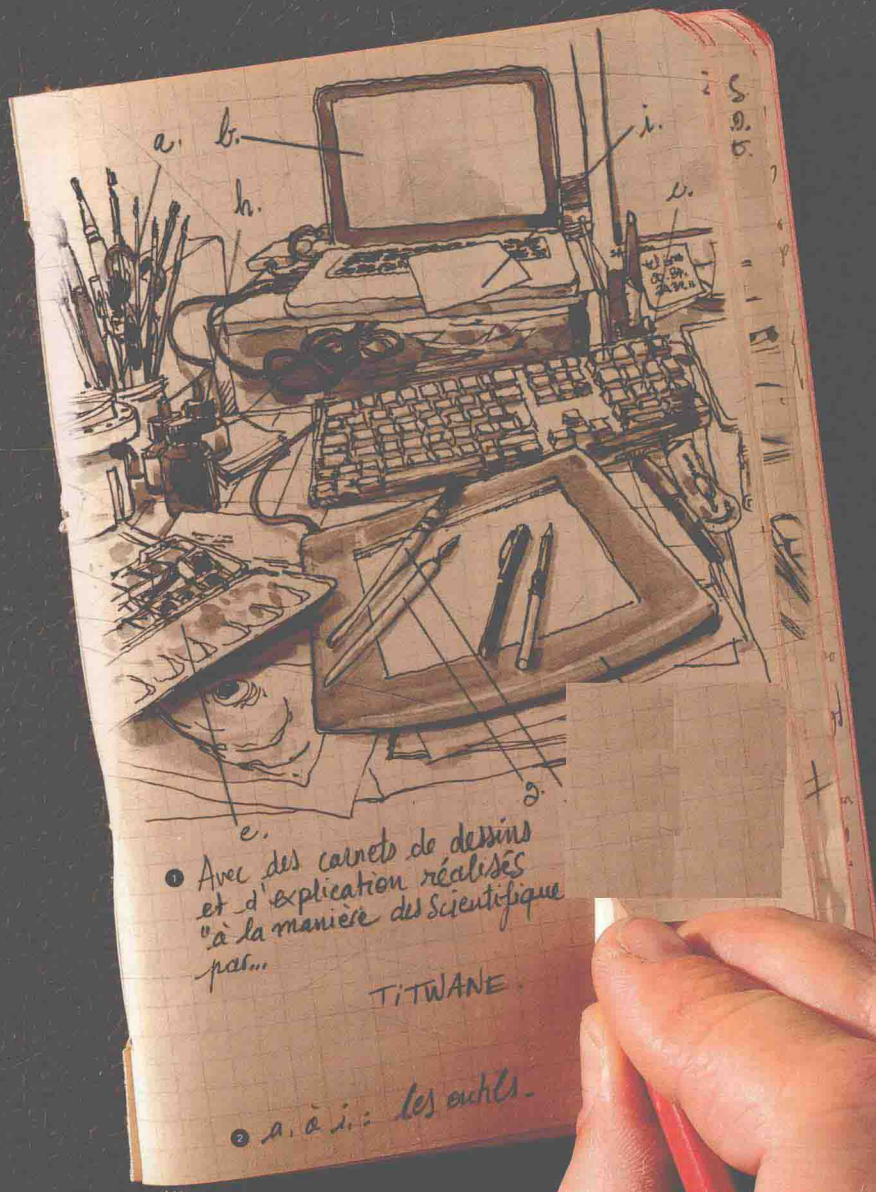 a.
b.
i.
h.
c.
S.
D.
g.
e.
1 Avec des carnets de dessins
et d'explication réalisés
"à la manière des Scientifique
par...
TiTWANE.
2 a. à i. : les outils.